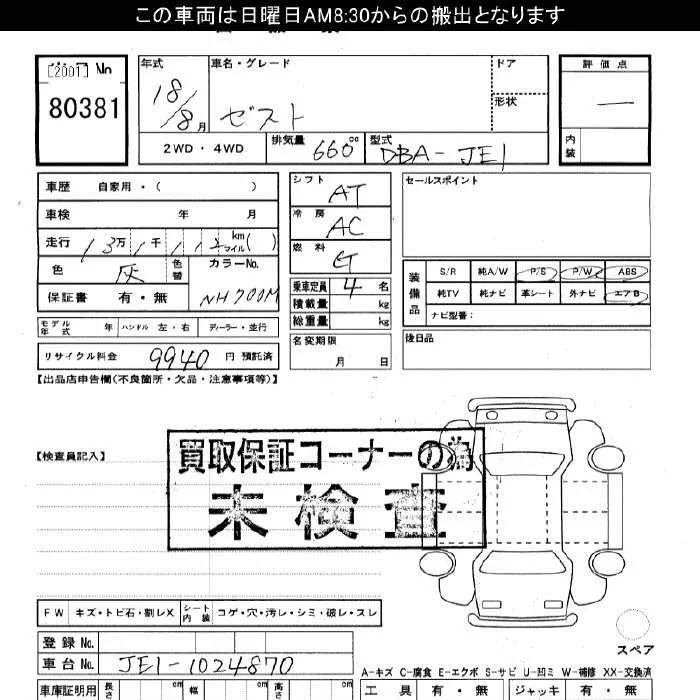 この車両は日曜日AM8:30からの搬出となります
[2001] No
80381
年式 車名・グレード ドア 評価点
18/8月 ゼスト 形状 —
2WD・4WD 排気量 660cc 型式 DBA-JE1 内装
車歴 自家用・( ) シフト AT セールスポイント
車検 年 月 冷房 AC
走行 13万1千112km マイル( ) 燃料
色 灰 色替 カラーNo. NH700M 乗車定員 4名
装備品 S/R 純A/W P/S P/W ABS
保証書 有・無 積載量 kg 純TV 純ナビ 革シート 外ナビ エアB
総重量 kg ナビ型番:
モデル年式 年 ハンドル 左・右 ディーラー・並行 名変期限 月 日 後日品
リサイクル料金 9940 円 預託済
【出品店申告欄(不良箇所・欠品・注意事項等)】
【検査員記入】
買取保証コーナーの為
未検査
FW キズ・トビ石・割レX シート内装 コゲ・穴・汚レ・シミ・破レ・スレ
登録No.
スペア
車台No. JE1-1024870
A-キズ C-腐食 E-エクボ S-サビ U-凹ミ W-補修 XX-交換済
車庫証明用 長さ cm 幅 cm 高さ cm 工具 有・無 ジャッキ 有・無